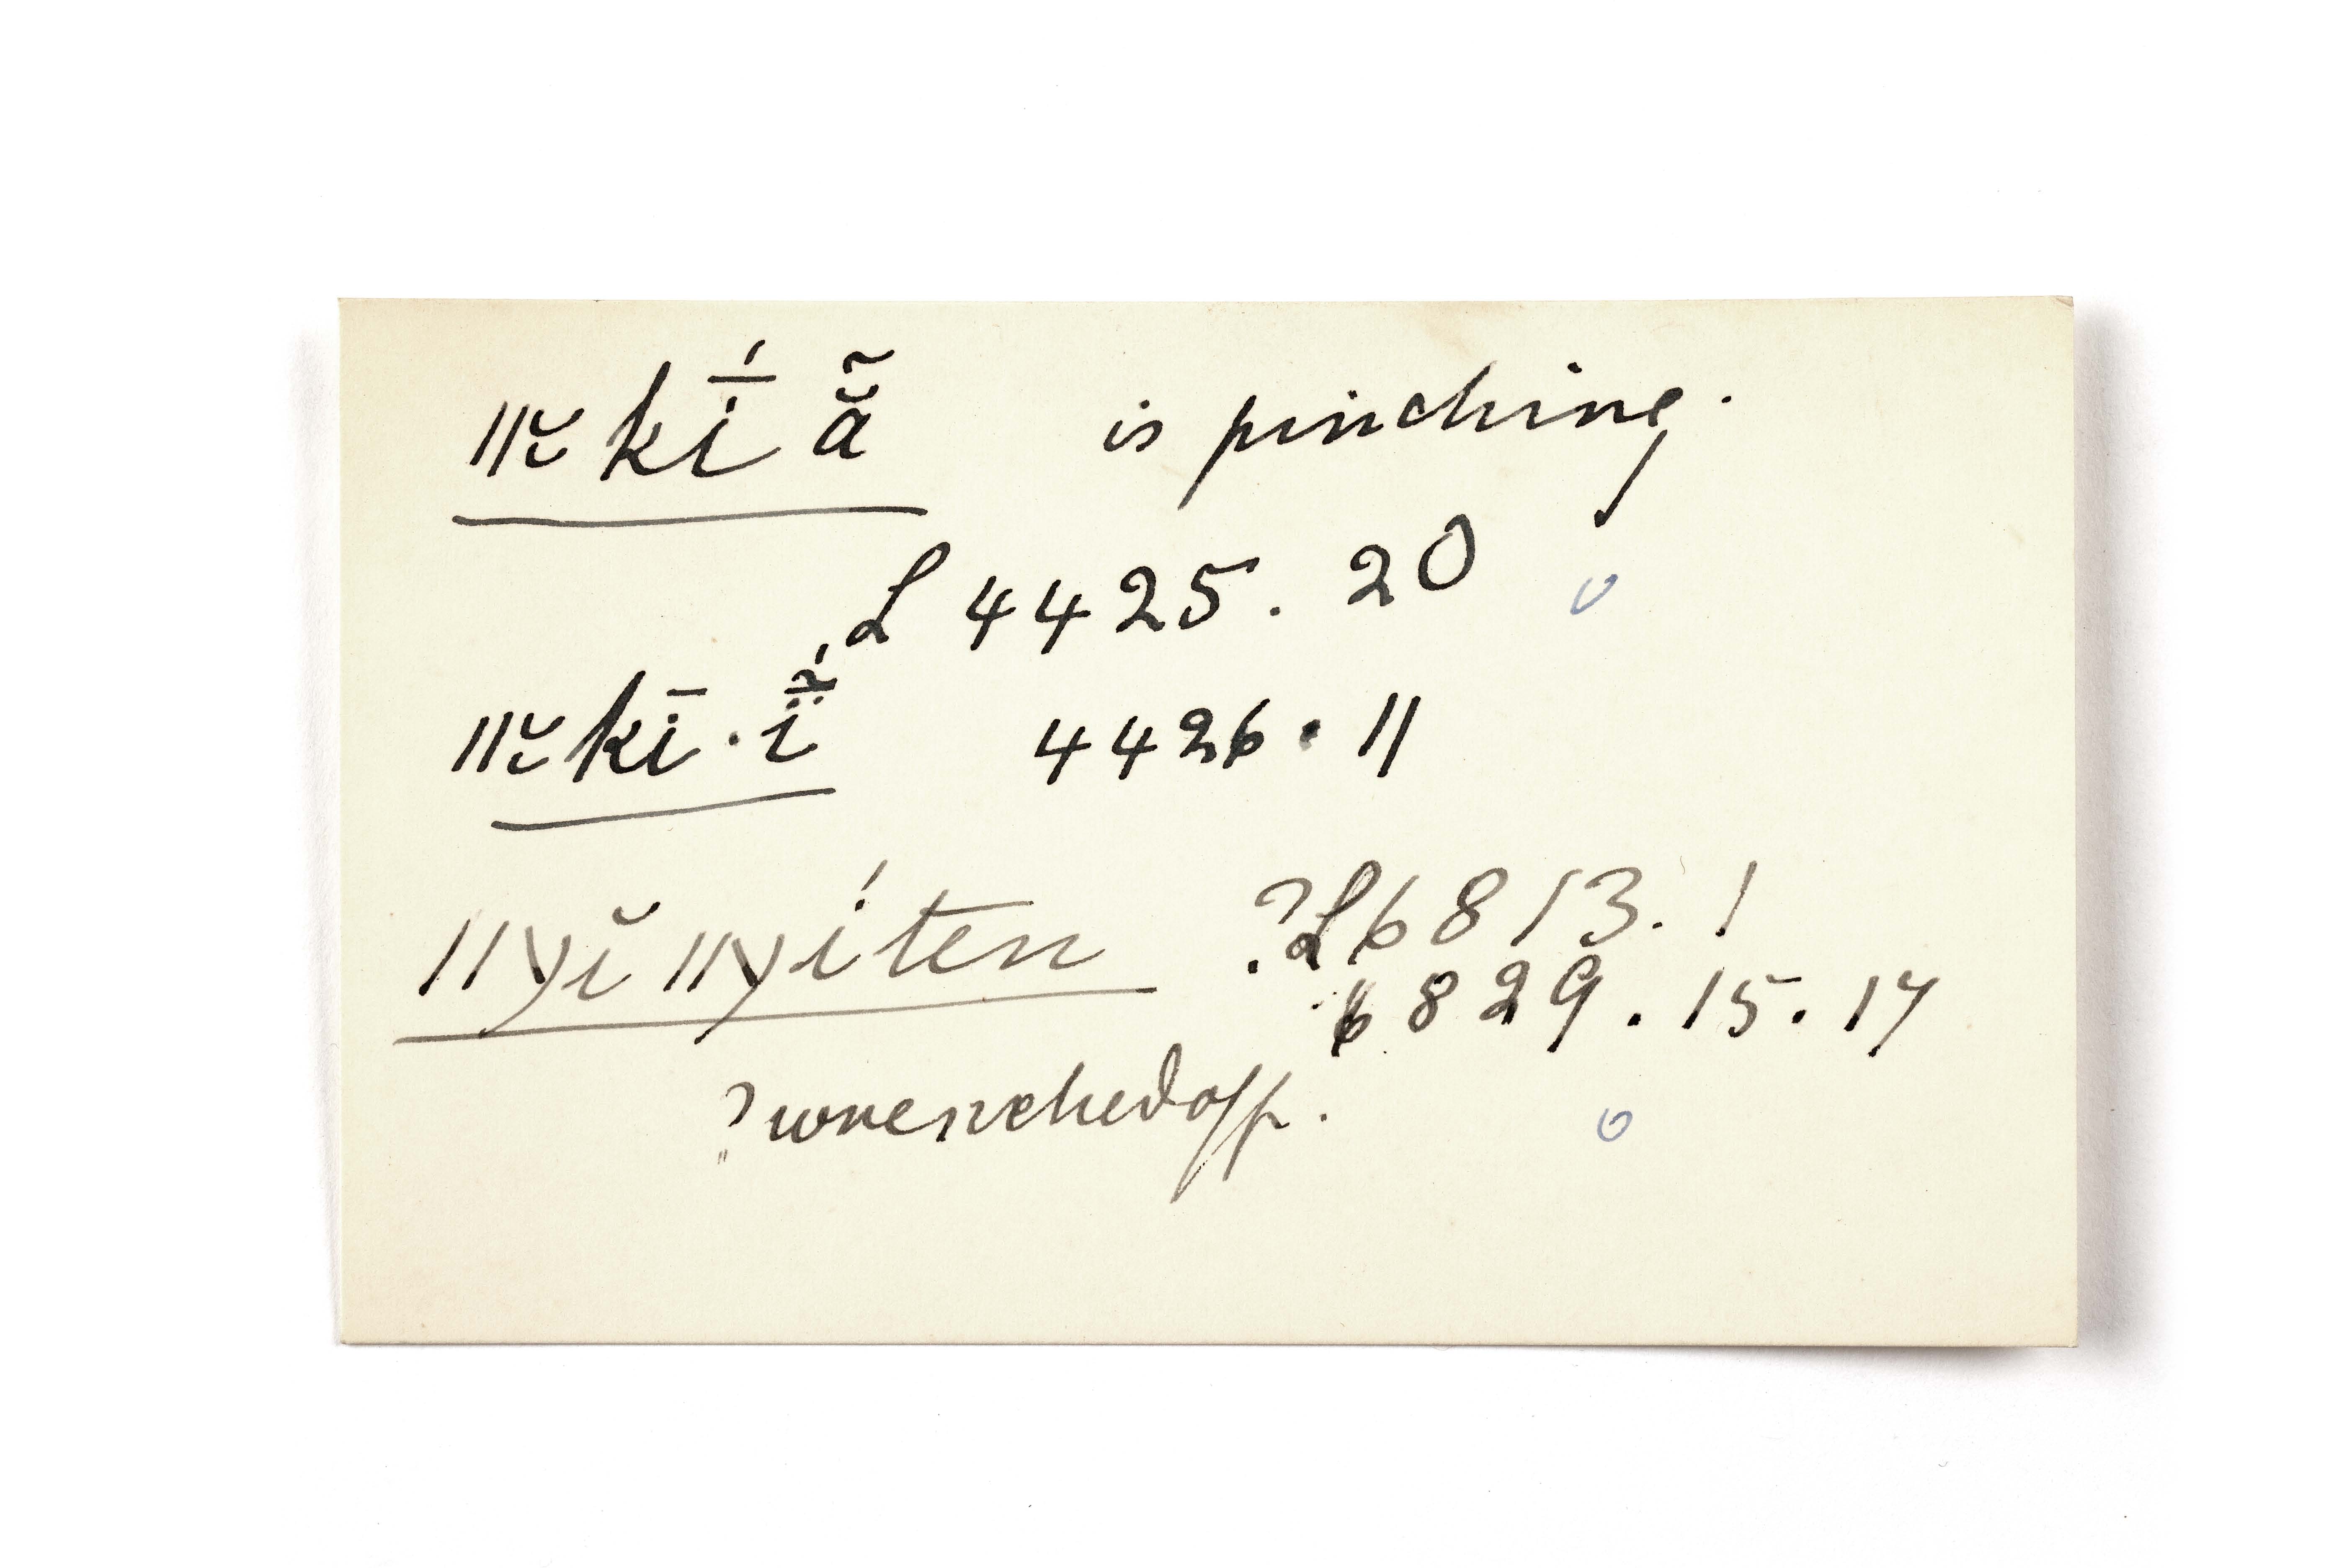 ǁκ̆kī́ ã̆ is pinching.
L 4425. 20
ǁκ̆kī·ï̄̃́ 4426. 11
ǁyĭ ǁyíten ? L 6813. 1
6829. 15. 17
? wrenched off.